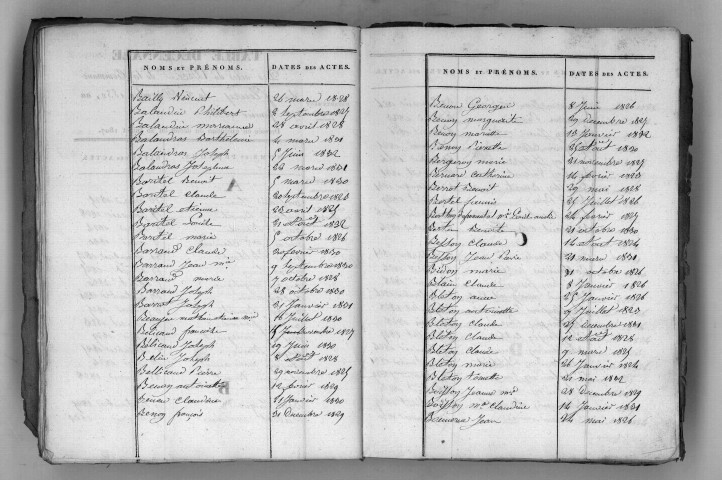 NOMS ET PRÉNOMS. DATES DES ACTES.
Bailly Vincent 26 mars 1828
Balandrin Philibert 2 Septembre 1827
Balandrin marianne 21 avril 1828
Balandras Barthelemie 4 mars 1831
Balandras Joseph 5 Juin 1832
Balandras Josephine 22 mars 1831
Bartel Benoit 5 mars 1830
Bartel Claude 20 septembre 1826
Bartel etienne 22 avril 1825
Bartel Louise 31 août 1832
Bartel marie 5 octobre 1826
Barraud Claude 20 fevrier 1830
Barraud Jean 9 septembre 1830
Barraud marie 7 octobre 1828
Barraud Joseph 28 octobre 1830
Barrot Joseph 31 Janvier 1831
16 Juillet 1830
Belicard françoise 1827
Belicard Joseph 19 Juin 1830
Belin Joseph 8 août 1828
Bellicard Pierre 29 novembre 1825
Benas antoinette 12 fevrier 1829
Claudine 11 Janvier 1830
Benoy françois 31 Decembre 1829
NOMS ET PRÉNOMS. DATES DES ACTES.
Georges 8 Juin 1826
marguerite 29 decembre 1825
mariette 13 Janvier 1832
Pierrette 25 août 1830
marie 21 novembre 1825
Bernard Catherine 16 fevrier 1823
Berrot Benoit 29 mai 1828
Bertel 25 Juillet 1826
26 fevrier 1827
Benoite 21 octobre 1830
Besson Claude 16 août 1824
Besson Jean Pierre 31 mars 1831
Bidon marie 31 octobre 1826
Blain Claude 8 Janvier 1826
Bleton anne 25 Janvier 1826
Bleton antoinette 9 Juillet 1823
Bleton Claude 27 Decembre 1831
Bleton Claude 12 août 1828
Bleton Claude 9 mars 1825
Bleton marie 26 Janvier 1824
Bleton 20 mai 1832
Boisson Jeanne 28 Decembre 1829
Boisson Claudine 14 Janvier 1831
Jean 24 mai 1826